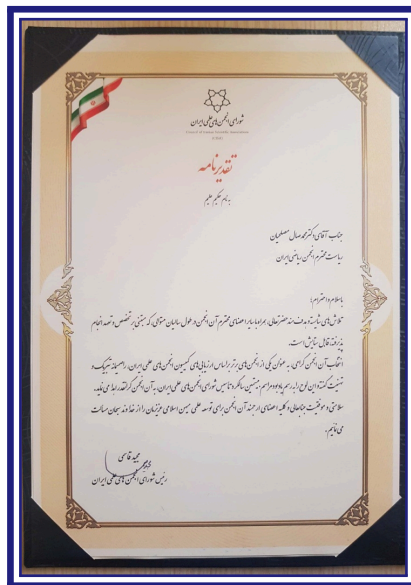 شورای انجمن‌های علمی ایران
تقدیرنامه
به نام حکیم علیم
جناب آقای دکتر محمد صال مصلحیان
ریاست محترم انجمن ریاضی ایران
باسلام و احترام؛
تلاش‌های شایسته و هدفمند حضرتعالی، همراه با سایر اعضای محترم آن انجمن در طول سالیان متوالی، که مبتنی بر تخصص و تعهد انجام
پذیرفته قابل ستایش است.
انتخاب آن انجمن گرامی، به عنوان یکی از انجمن‌های برتر بر اساس ارزیابی‌های کمیسیون انجمن‌های علمی ایران، را صمیمانه تبریک و
تهنیت گفته و این لوح را به رسم یادبود مراسم بیستمین سالگرد تاسیس شورای انجمن‌های علمی ایران، به آن انجمن گرانقدر اهدا می‌نماید.
سلامتی و موفقیت جنابعالی و کلیه اعضای ارجمند آن انجمن برای توسعه علمی میهن اسلامی عزیزمان را از خداوند سبحان مسألت
می‌نمائیم.
مجید قاسمی
رئیس شورای انجمن‌های علمی ایران